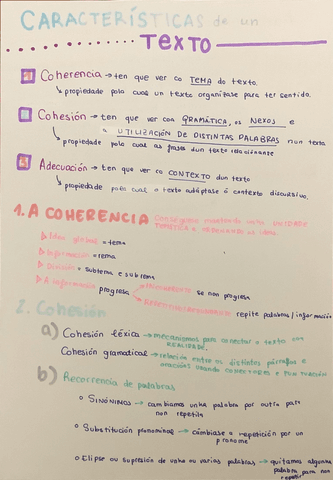 CARACTERÍSTICAS de un
TEXTO
1 Coherencia → ten que ver co TEMA do texto.
↳ propiedade pola cual un texto organízase para ter sentido.
2 Cohesión → ten que ver coa GRAMÁTICA, os NEXOS e
a UTILIZACIÓN DE DISTINTAS PALABRAS nun texto
↳ propiedade pola cual as frases dun texto relaciónanse
3 Adecuación → ten que ver co CONTEXTO dun texto
↳ propiedade pola cual o texto adáptase ó contexto discursivo.
1. A COHERENCIA
UNIDADE
TEMÁTICA
▷ Idea global = tema
▷ Información = rema
▷ División = subtema e subrema
▷ A información progresa
se non progresa
repite palabras / información
2. Cohesión
a) Cohesión léxica → mecanismos para conectar o texto coa
REALIDADE.
Cohesión gramatical → relación entre os distintos párrafos e
oracións usando conectores e puntuación
b) Recorrencia de palabras
○ SINÓNIMOS → cambiamos unha palabra por outra para
non repetila
○ Substitución pronominal → cámbiase a repetición por un
pronome
○ Elipse ou supresión de unha ou varias palabras → quitamos algunha
palabra para non
repetir